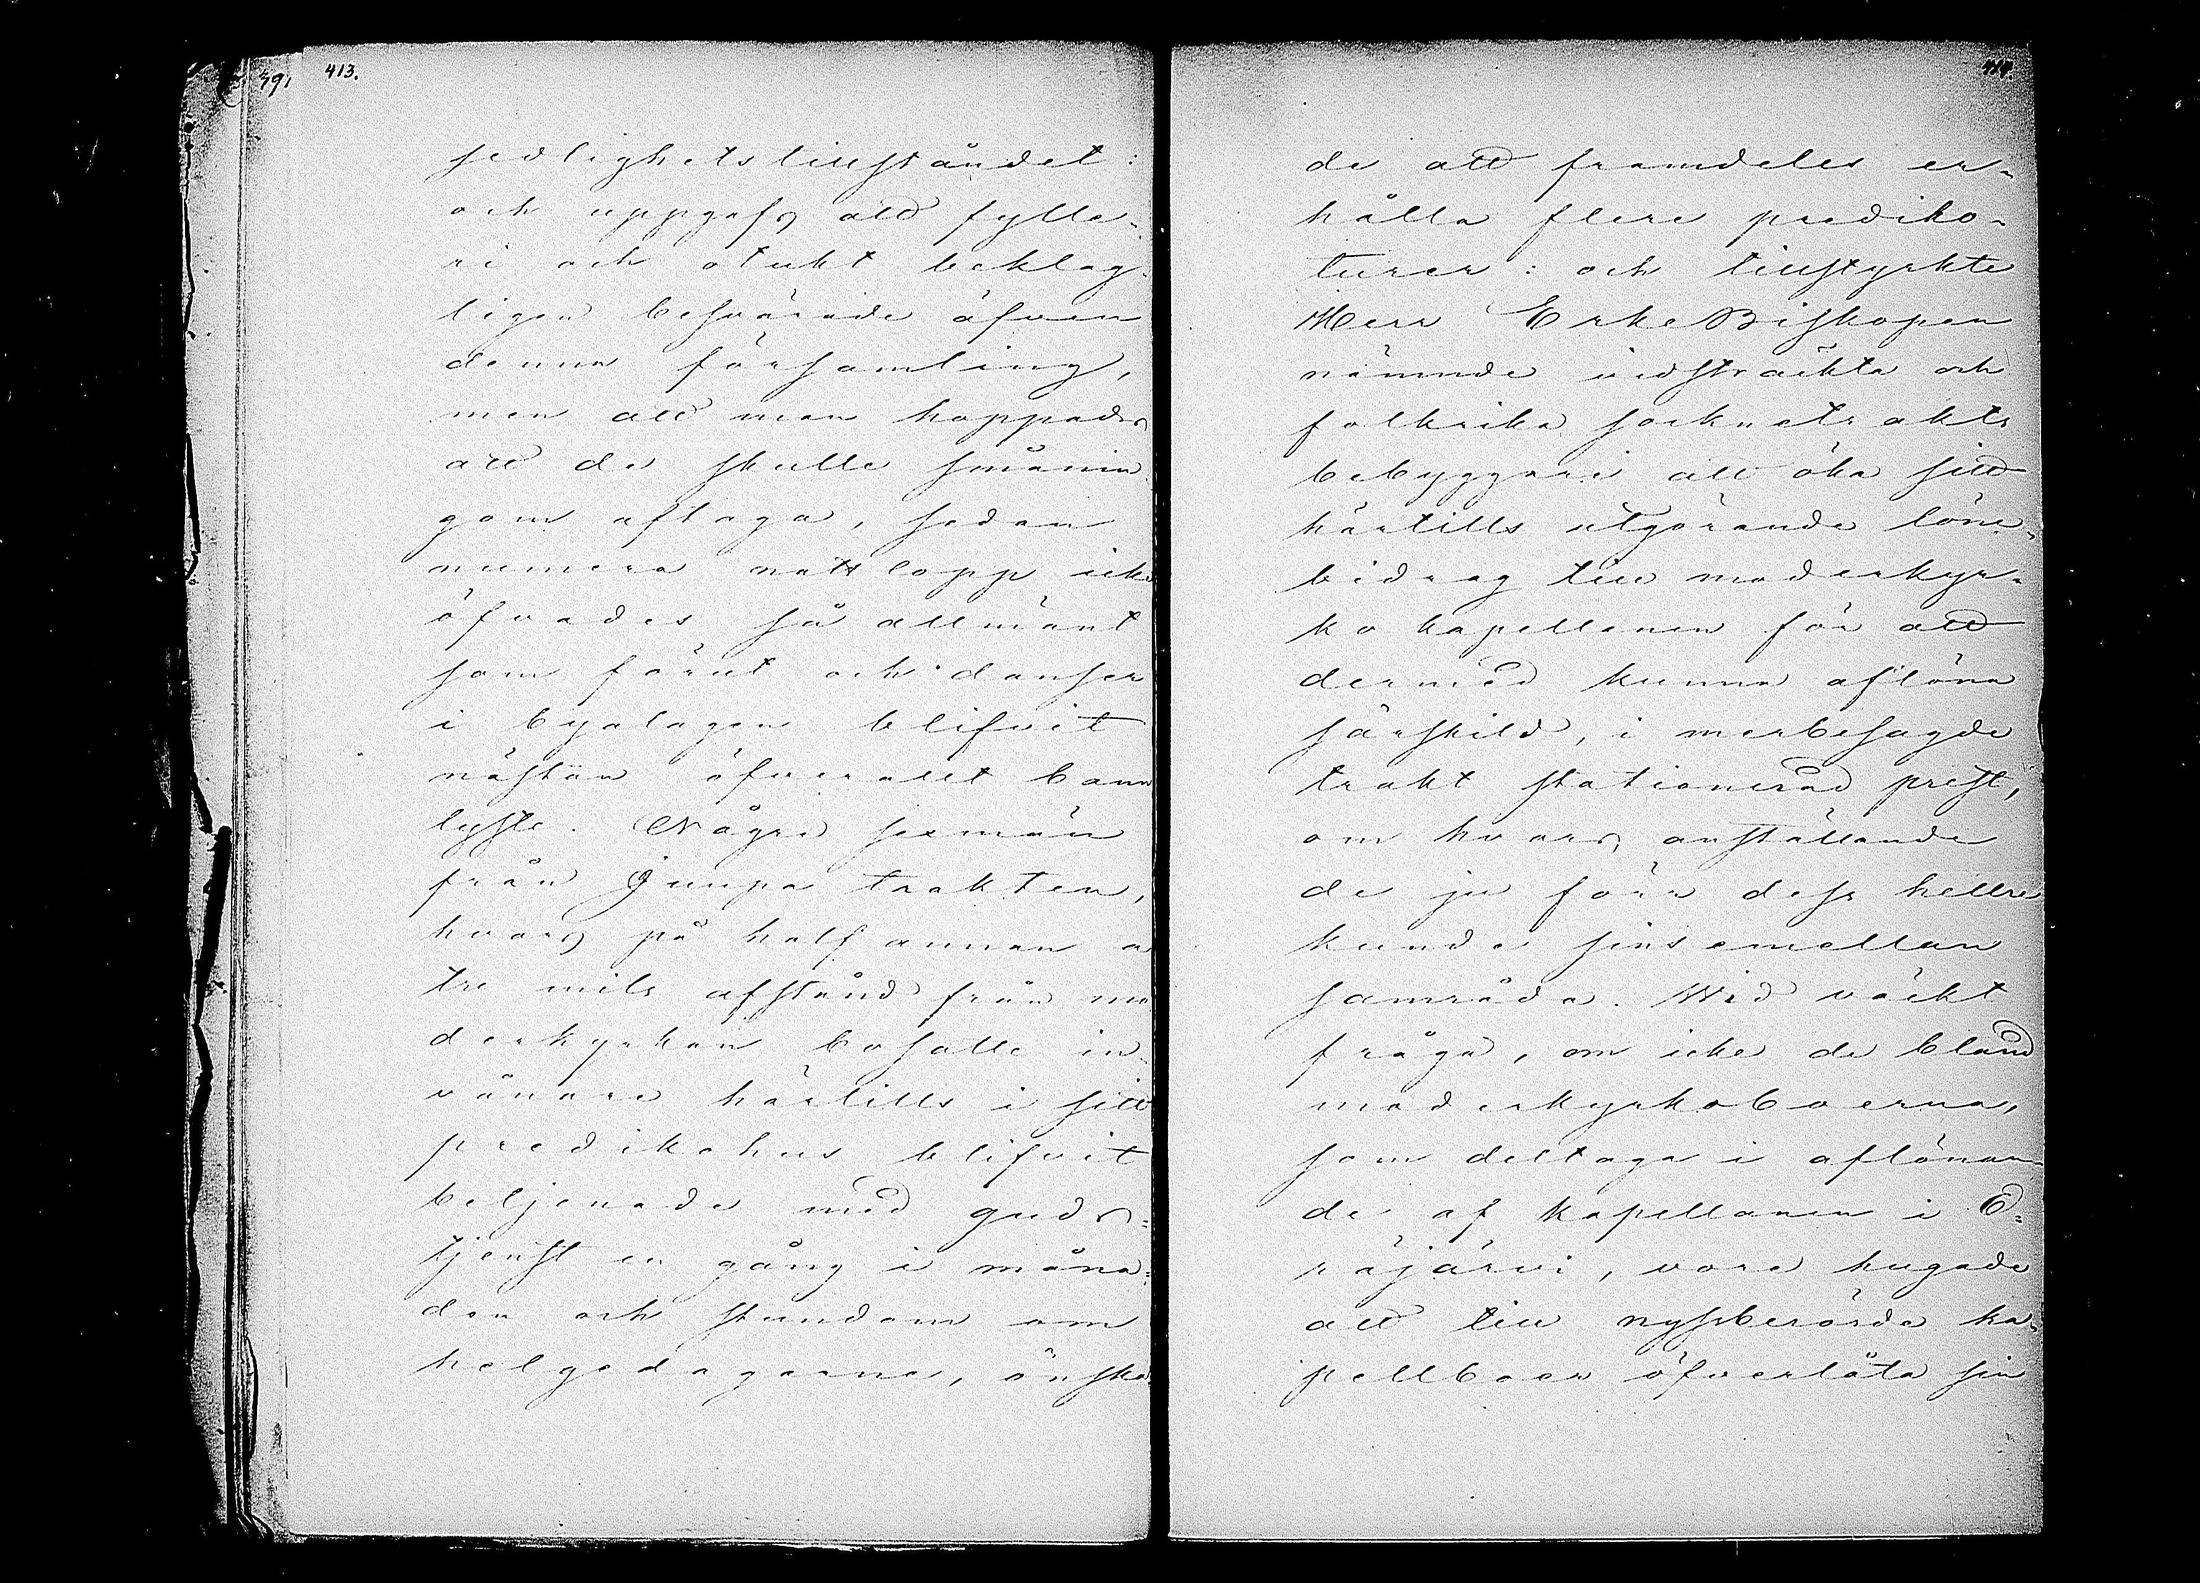 491
413.
sedlighetstillståndet:
och uppgafs att fylle-
ri och otukt beklag-
ligen besvärade äfven
denna församling,
men att man hoppades
att de skulle smånin
gom aftaga, sedan
numera nattlopp icke
öfvades så allmänt
som förut och danser
i byalagen blifvit
nästan öfverallt bann
lyste. Någre sexmän
från Juupa trakten,
hvars på half annan a
tre mils afstånd från mo
derkyrkan bosatte in-
vånare härtills i sitt
predikohus blifvit
betjenade med guds-
tjenst en gång i måna-
den och stundom om
helgedagarne, önska
414.
de att framdeles er-
hålla flere prediko-
turer: och tillstyrkte
Herr ErkeBiskopen
nämnde vidsträckta och
folkrika socknetrakts
bebyggare att öka sitt
härtills utgörande löne-
bidrag till moderkyr-
ko kapellanen för att
dermed kunna aflöna
särskild, i merbesagde
trakt stationerad prest,
om hvars anställande
de ju förr dess hellre
kunde sins emellan
samråda. Wid väckt
fråga, om icke de bland
moderkyrkoboerna,
som deltaga i aflönan
de af kapellanen i E-
räjärvi, vore hugade
att till nyssberörde ka-
pellboer öfverlåta sin